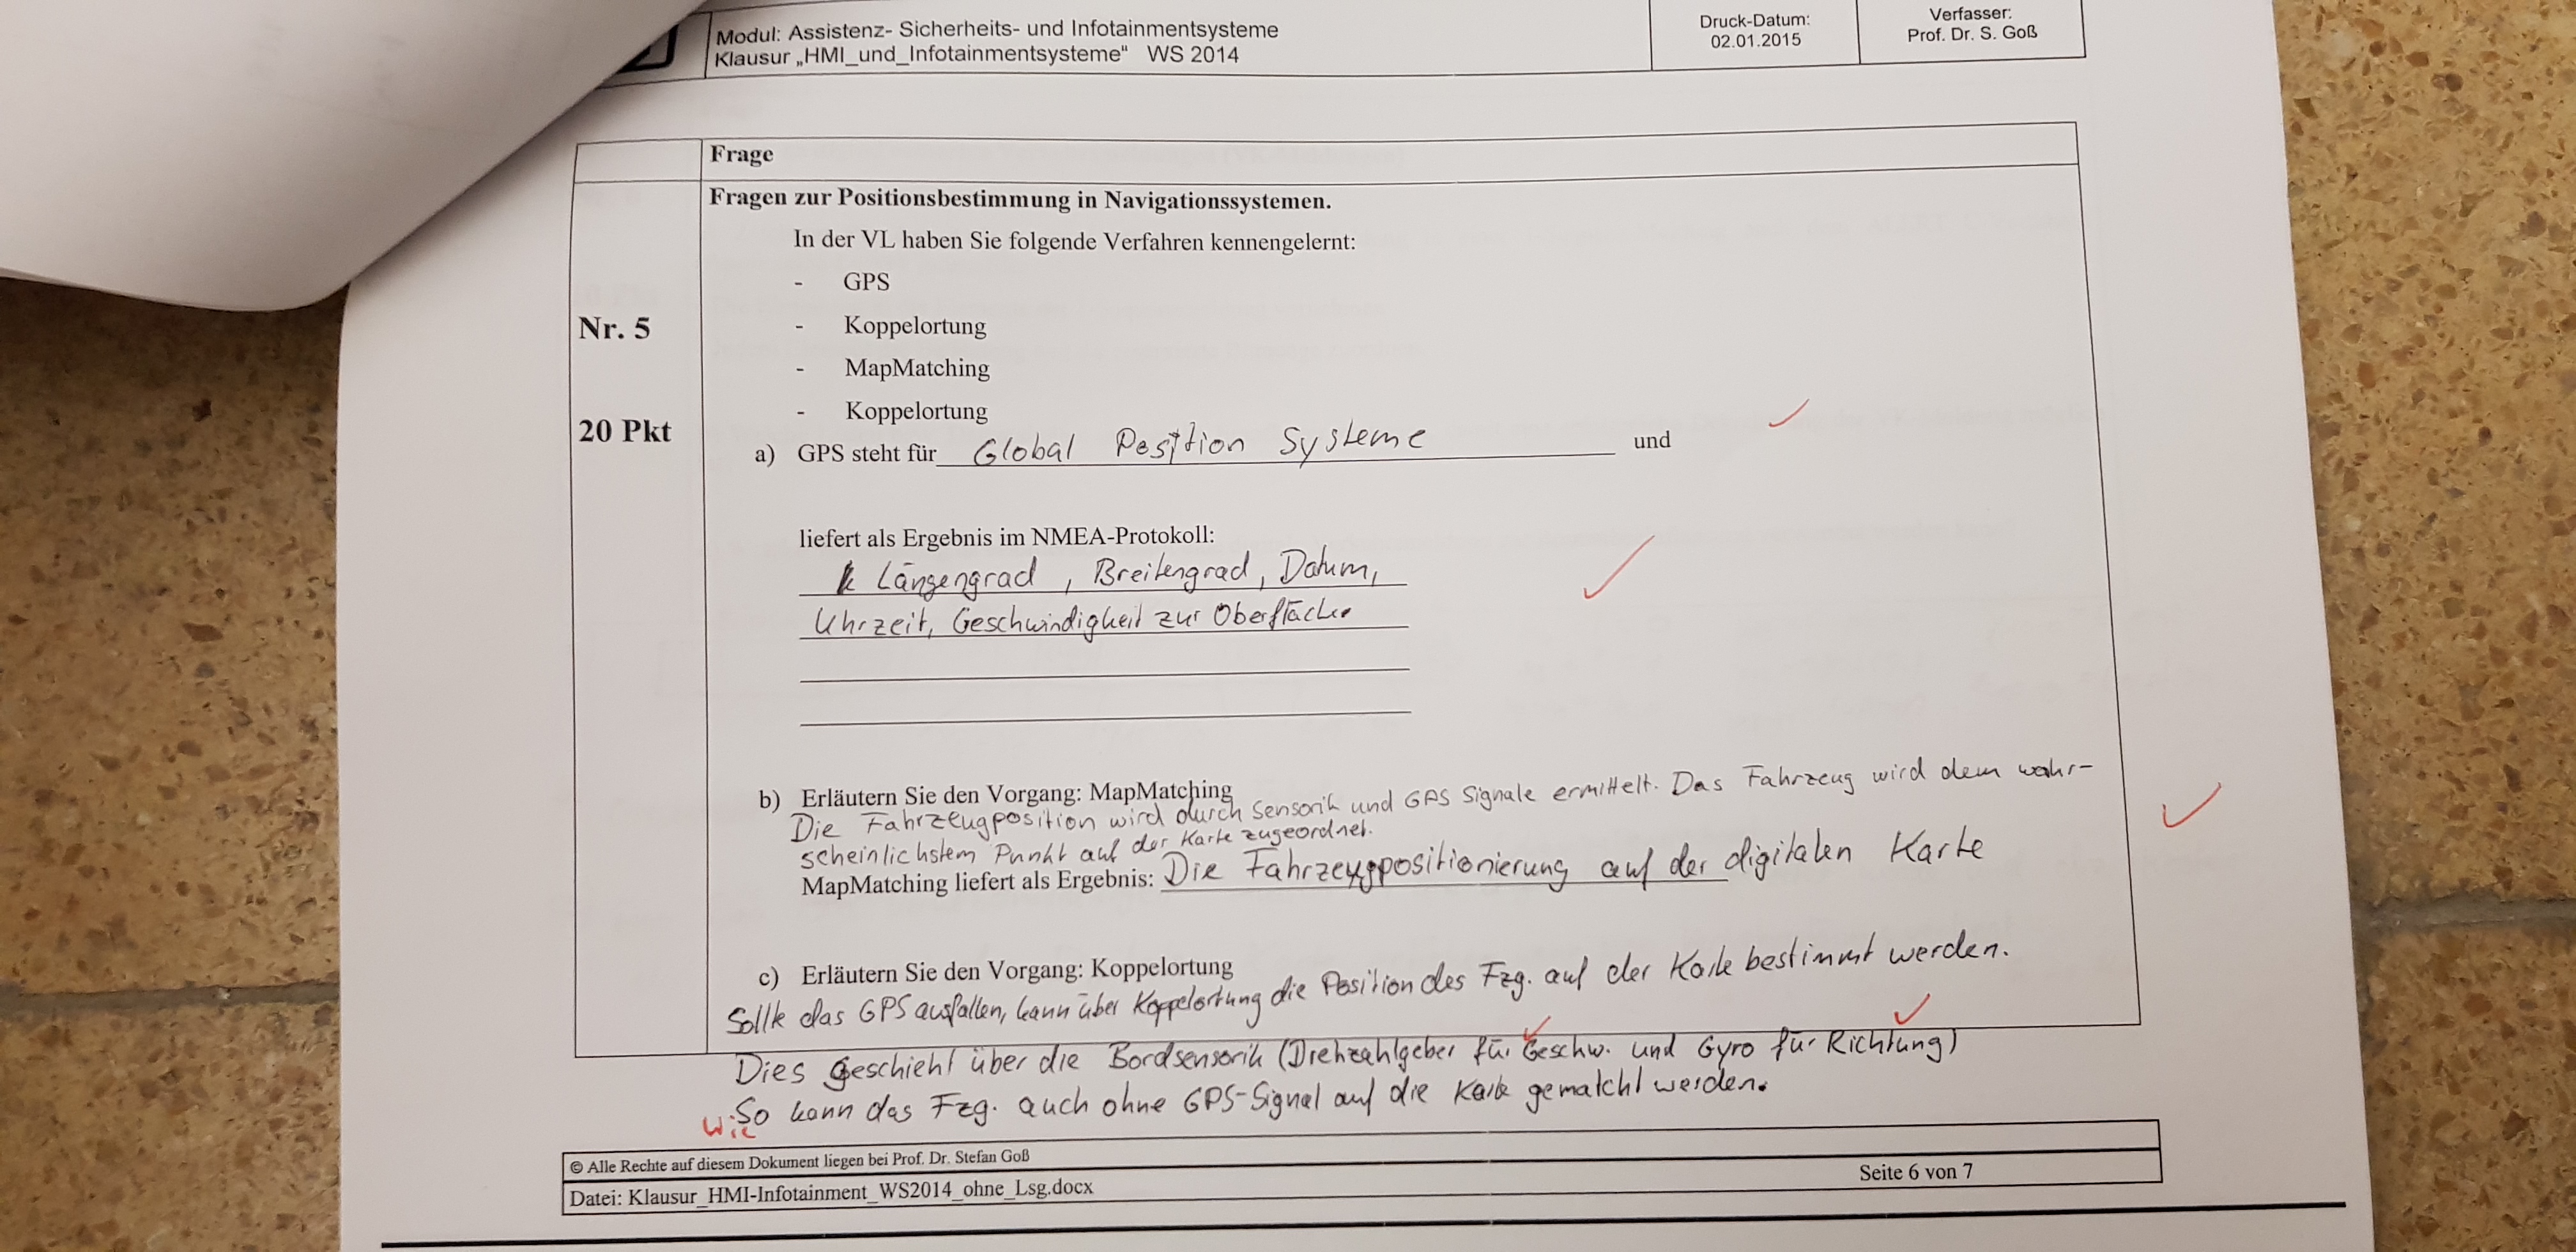 Modul: Assistenz- Sicherheits- und Infotainmentsysteme
Klausur „HMI_und_Infotainmentsysteme“ WS 2014
Druck-Datum:
02.01.2015
Verfasser:
Prof. Dr. S. Goß
Frage
Nr. 5
20 Pkt
Fragen zur Positionsbestimmung in Navigationssystemen.
In der VL haben Sie folgende Verfahren kennengelernt:
- GPS
- Koppelortung
- MapMatching
- Koppelortung
a) GPS steht für Global Position Systeme und
liefert als Ergebnis im NMEA-Protokoll:
Längengrad, Breitengrad, Datum,
Uhrzeit, Geschwindigkeit zur Oberfläche
b) Erläutern Sie den Vorgang: MapMatching
Die Fahrzeugposition wird durch Sensorik und GPS Signale ermittelt. Das Fahrzeug wird dem wahr-
scheinlichstem Punkt auf der Karte zugeordnet.
MapMatching liefert als Ergebnis: Die Fahrzeugpositionierung auf der digitalen Karte
c) Erläutern Sie den Vorgang: Koppelortung
Sollte das GPS ausfallen, kann über Koppelortung die Position des Fzg. auf der Karte bestimmt werden.
Dies geschieht über die Bordsensorik (Drehzahlgeber für Geschw. und Gyro für Richtung)
So kann das Fzg. auch ohne GPS-Signal auf die Karte gematcht werden.
wie
© Alle Rechte auf diesem Dokument liegen bei Prof. Dr. Stefan Goß
Datei: Klausur_HMI-Infotainment_WS2014_ohne_Lsg.docx
Seite 6 von 7